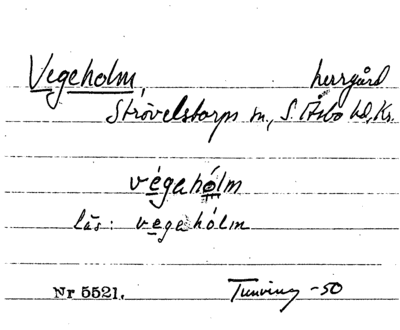 Vegeholm, herrgård
Strövelstorps sn., S. Åsbo hd, Kr.
végahólm
läs: vegahólm
Nr 5521. Tunving -50